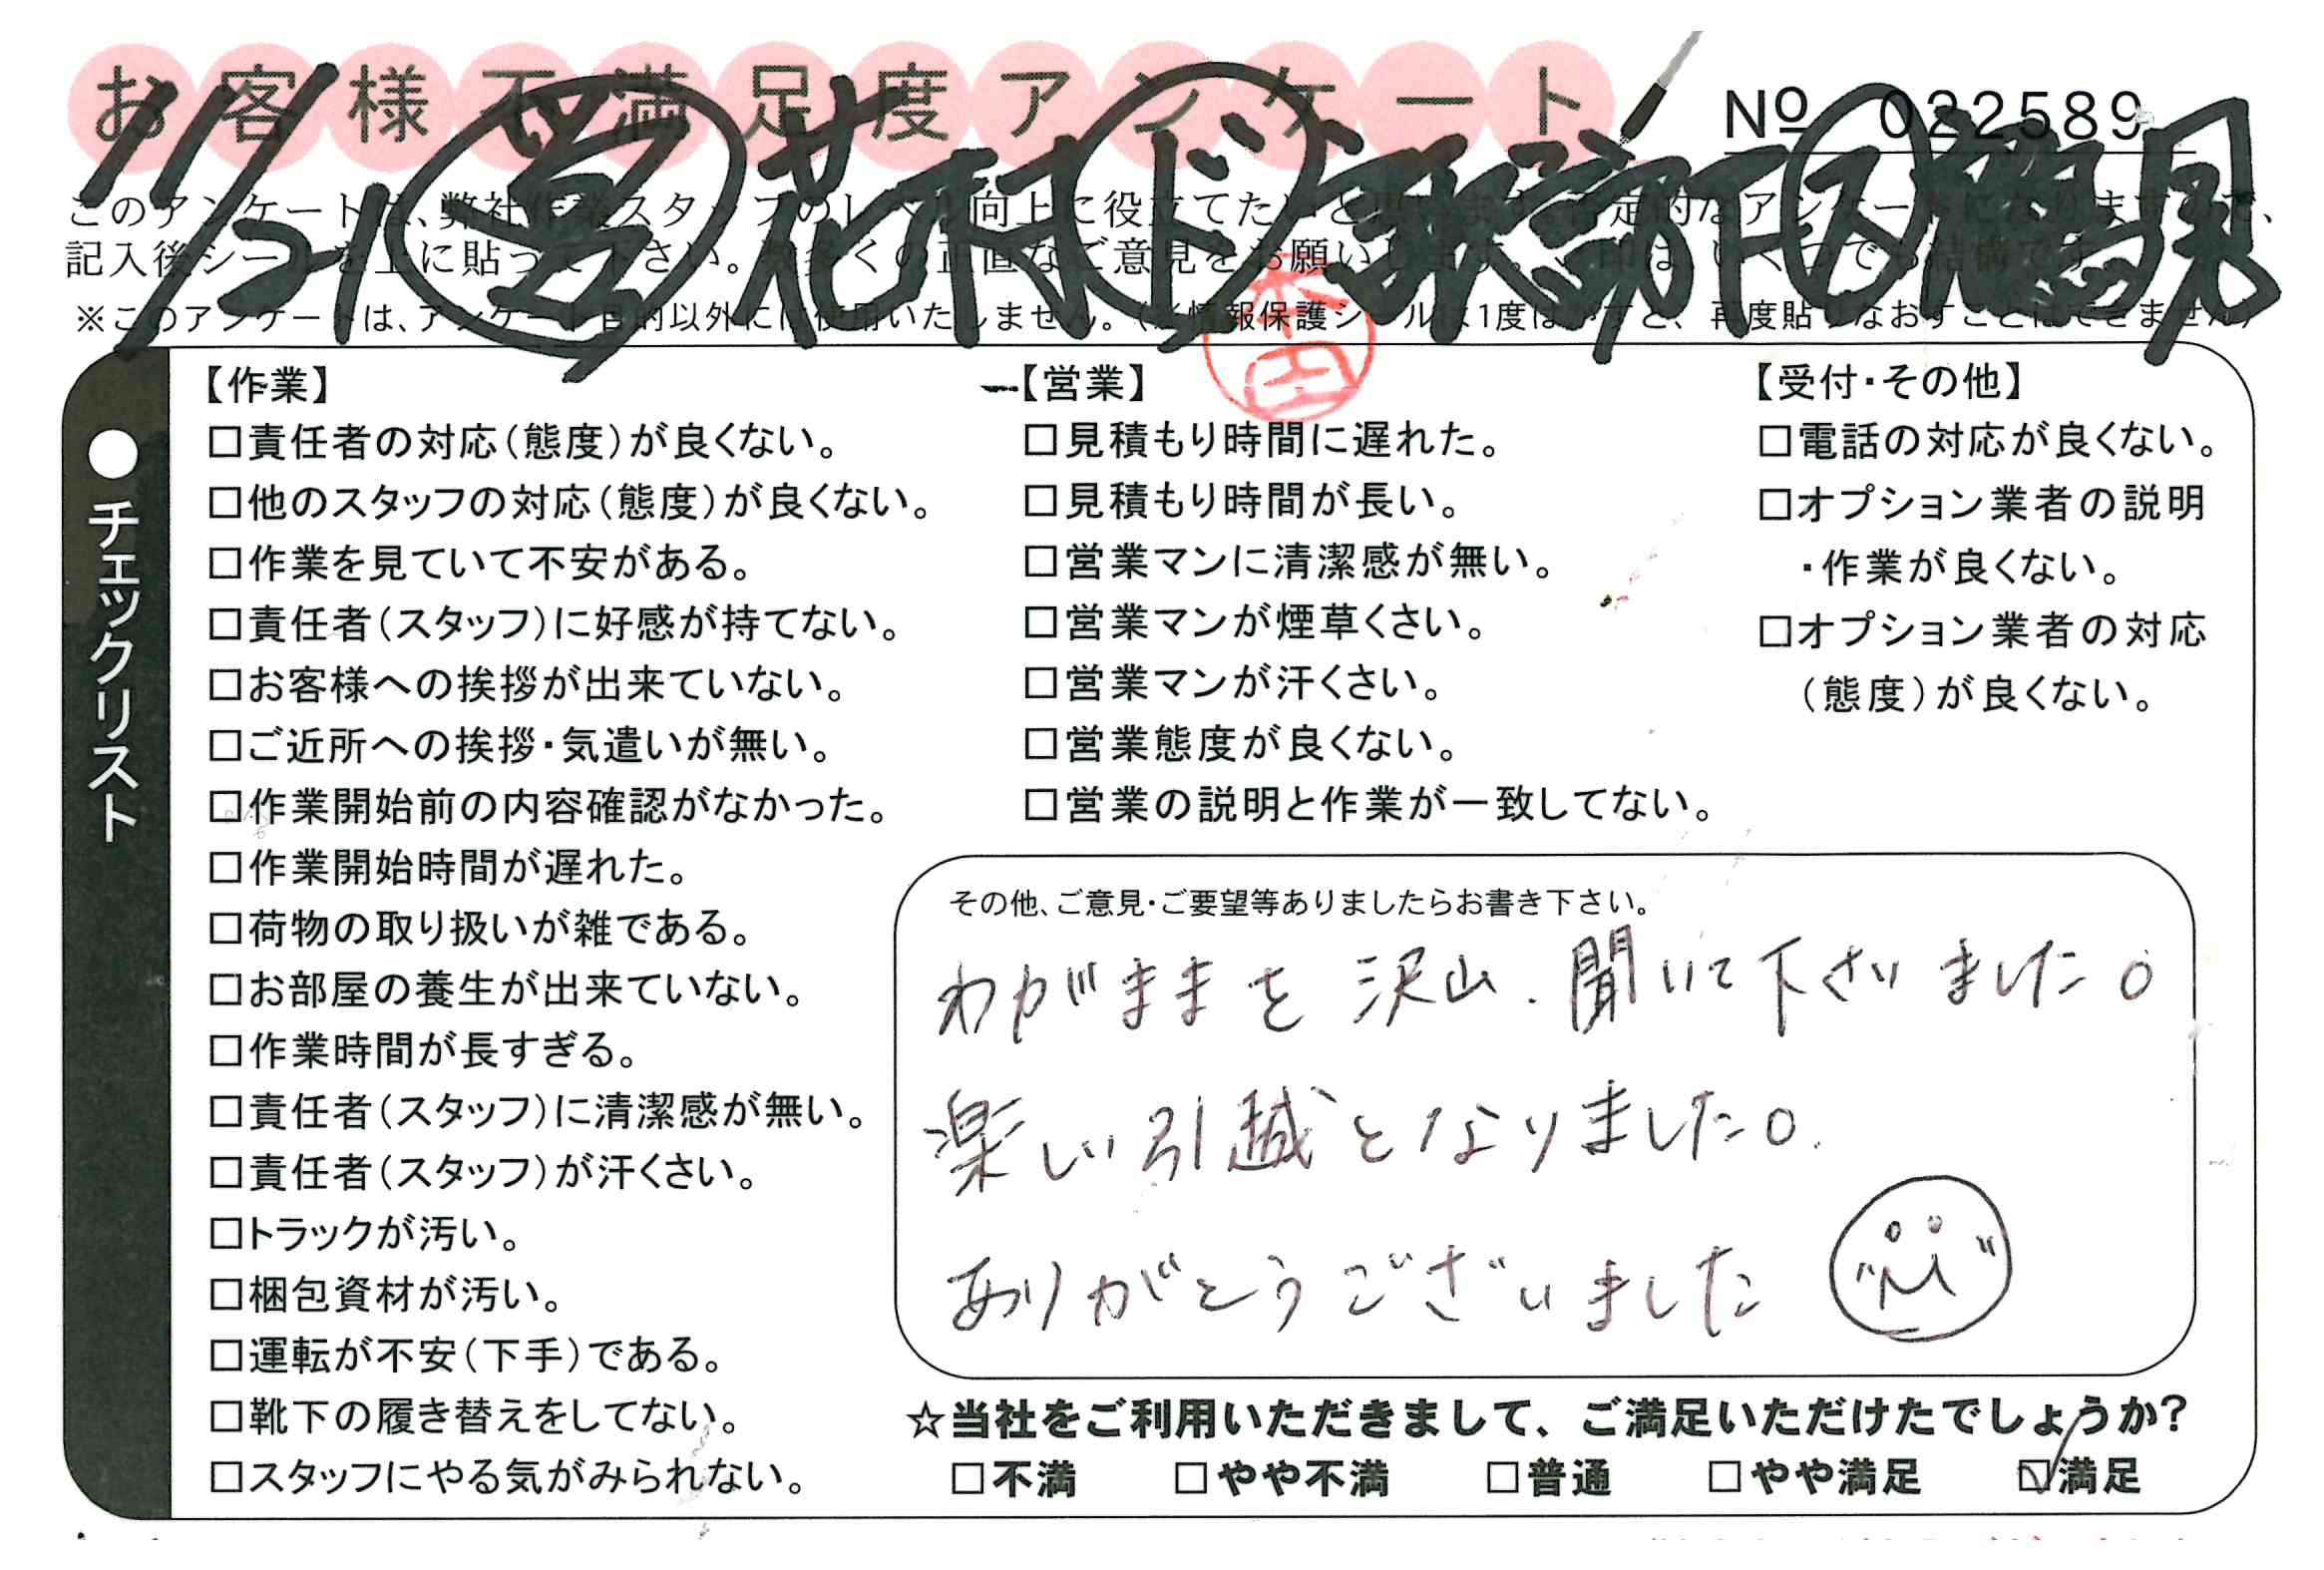 お客様不満足度アンケート
№ 022589
11/21 営 花村 ド 諏訪下 ス 鶴見
このアンケートは、弊社作業スタッフのレベル向上に役立てたいと
記入後シールを上に貼って下さい。数多くの正直なご意見をお願いします。
※このアンケートは、アンケート目的以外には使用いたしません。(※情報保護シールは1度はがすと、再度貼りなおすことはできません)
本田
●チェックリスト
【作業】
□責任者の対応(態度)が良くない。
□他のスタッフの対応(態度)が良くない。
□作業を見ていて不安がある。
□責任者(スタッフ)に好感が持てない。
□お客様への挨拶が出来ていない。
□ご近所への挨拶・気遣いが無い。
□作業開始前の内容確認がなかった。
□作業開始時間が遅れた。
□荷物の取り扱いが雑である。
□お部屋の養生が出来ていない。
□作業時間が長すぎる。
□責任者(スタッフ)に清潔感が無い。
□責任者(スタッフ)が汗くさい。
□トラックが汚い。
□梱包資材が汚い。
□運転が不安(下手)である。
□靴下の履き替えをしてない。
□スタッフにやる気がみられない。
【営業】
□見積もり時間に遅れた。
□見積もり時間が長い。
□営業マンに清潔感が無い。
□営業マンが煙草くさい。
□営業マンが汗くさい。
□営業態度が良くない。
□営業の説明と作業が一致してない。
【受付・その他】
□電話の対応が良くない。
□オプション業者の説明
・作業が良くない。
□オプション業者の対応
(態度)が良くない。
その他、ご意見・ご要望等ありましたらお書き下さい。
わがままを沢山、聞いて下さいました。
楽しい引越となりました。
ありがとうございました
☆当社をご利用いただきまして、ご満足いただけたでしょうか?
□不満 □やや不満 □普通 □やや満足 ☑満足